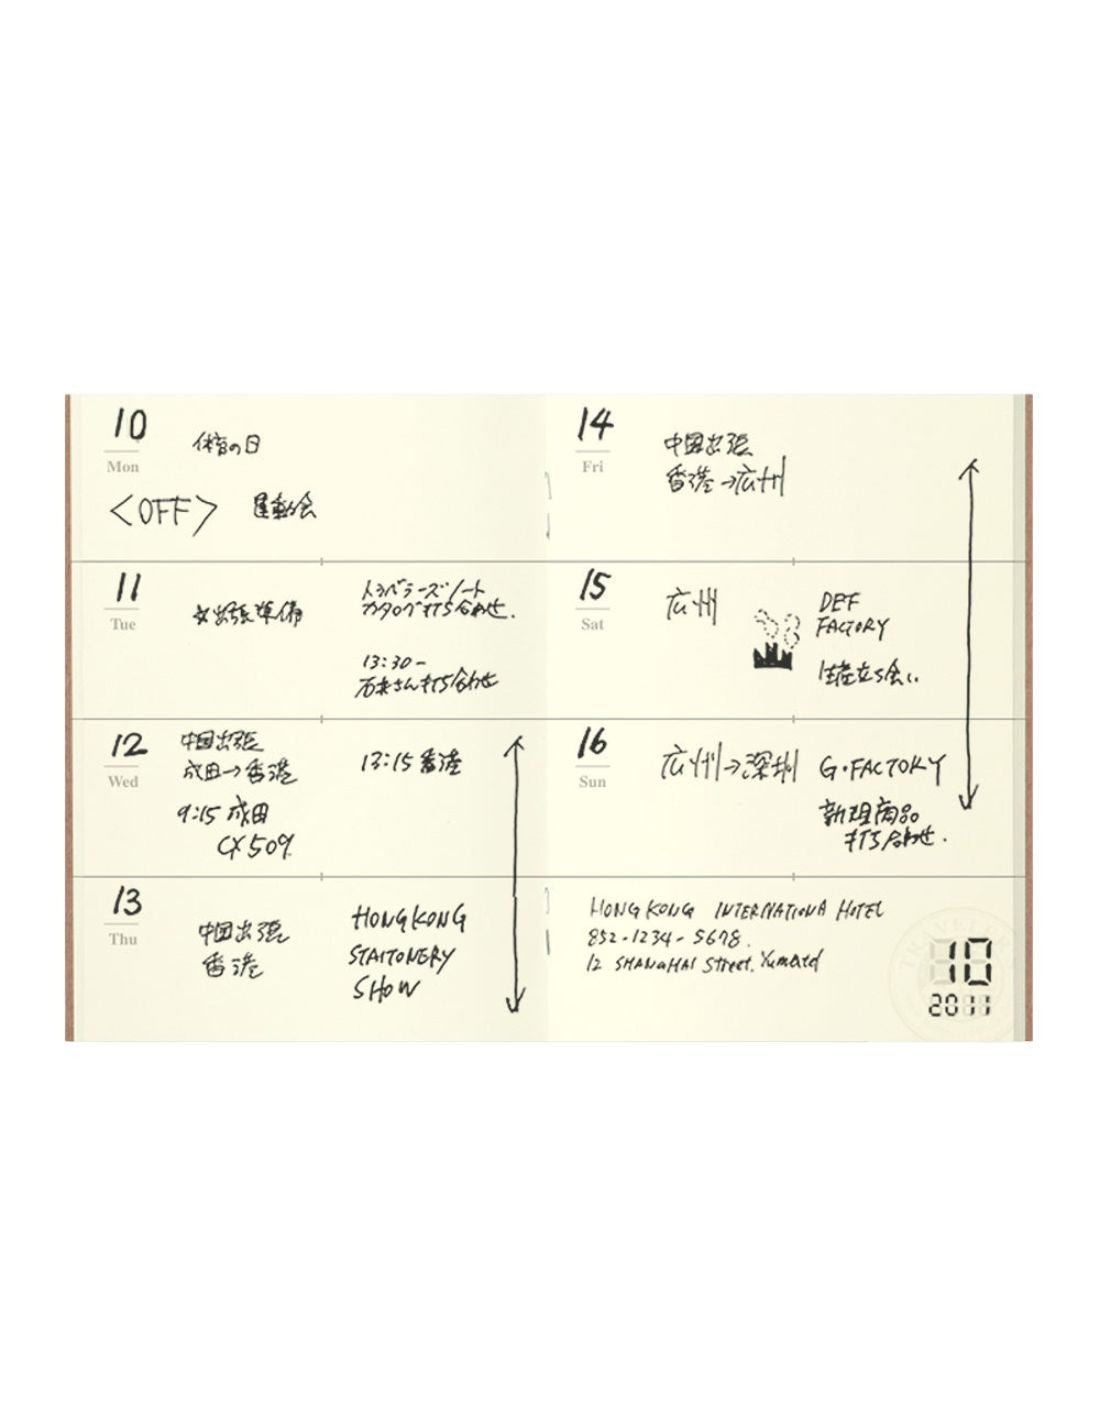 10
Mon
体育の日
<OFF> 運動会
11
Tue
☆出張準備
トラベラーズノート
カタログ打ち合わせ.
13:30-
さん打ち合わせ
12
Wed
中国出張
成田→香港
9:15 成田
CX509
13:15 香港
13
Thu
中国出張
香港
HONG KONG
STAITONERY
SHOW
14
Fri
中国出張
香港→広州
15
Sat
広州
DEF
FACTORY
生産立ち会い.
16
Sun
広州→深圳
G・FACTORY
新規商品
打ち合わせ.
HONG KONG INTERNATIONA HOTEL
852-1234-5678.
12 SHANGHAI Street.
TRAVELER'S
10
2011